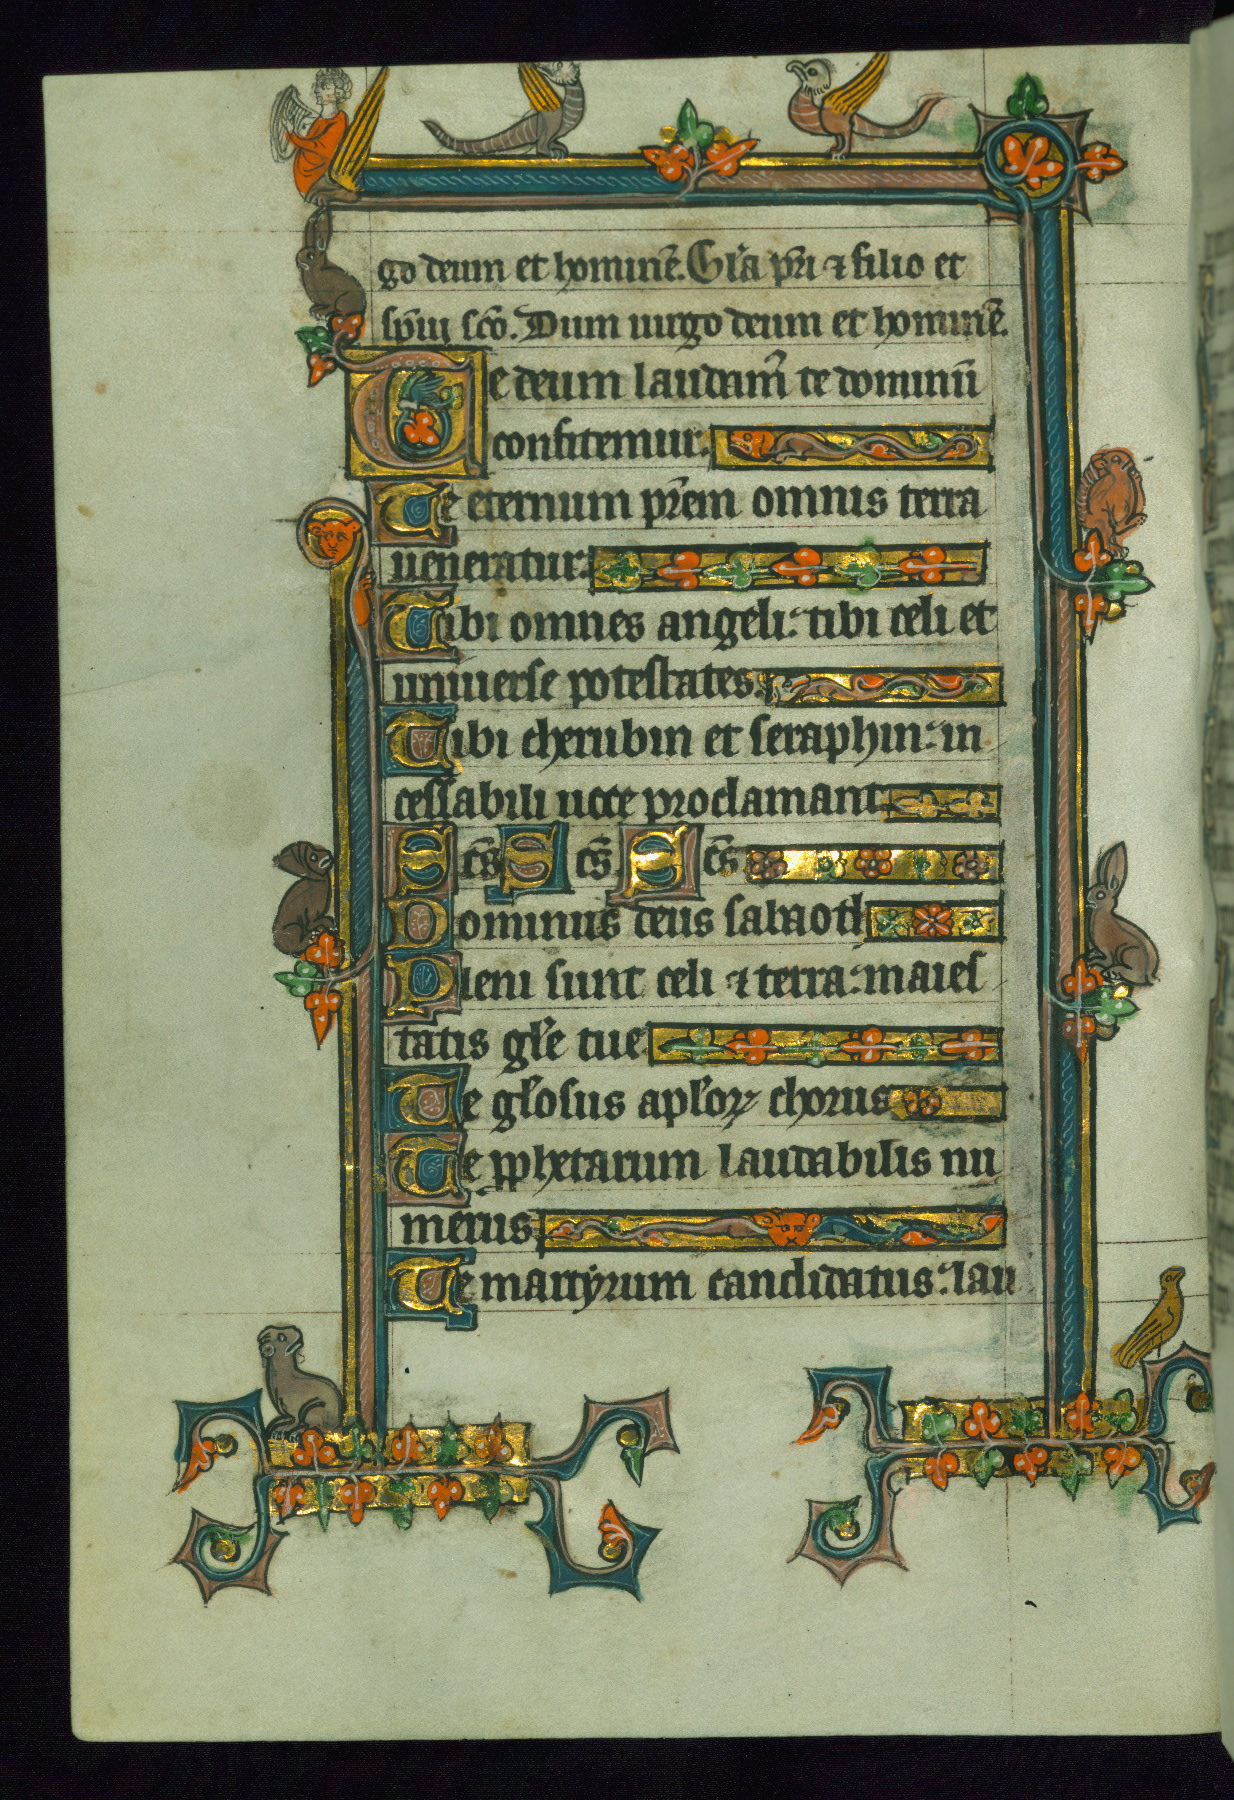 go deum et hominē. Gl̄a pr̄i ⁊ filio et
sp̄ui sc̄o. Dum uirgo deum et hominē.
Te deum laudam̄ te dominū
confitemur.
Te eternum pr̄em omnis terra
ueneratur.
Tibi omnes angeli: tibi celi et
uniuerse potestates.
Tibi cherubin et seraphin: in
cessabili uoce proclamant
Sc̄s Sc̄s Sc̄s
Dominus deus sabaoth
Pleni sunt celi ⁊ terra: maies
tatis gl̄e tue
Te gl̄osus apl̄oꝝ chorus
Te ꝓphetarum laudabilis nu
merus
Te martyrum candidatus: lau